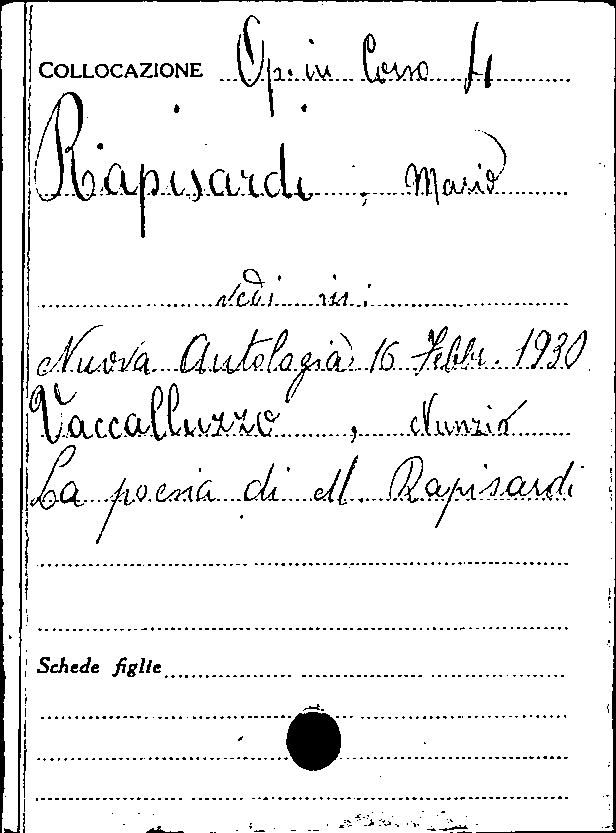 COLLOCAZIONE Op. in Corso 41
Rapisardi, Mario
vedi in:
Nuova Antologia: 16 Febbr. 1930
Vaccalluzzo, Nunzio
La poesia di M. Rapisardi
Schede figlie